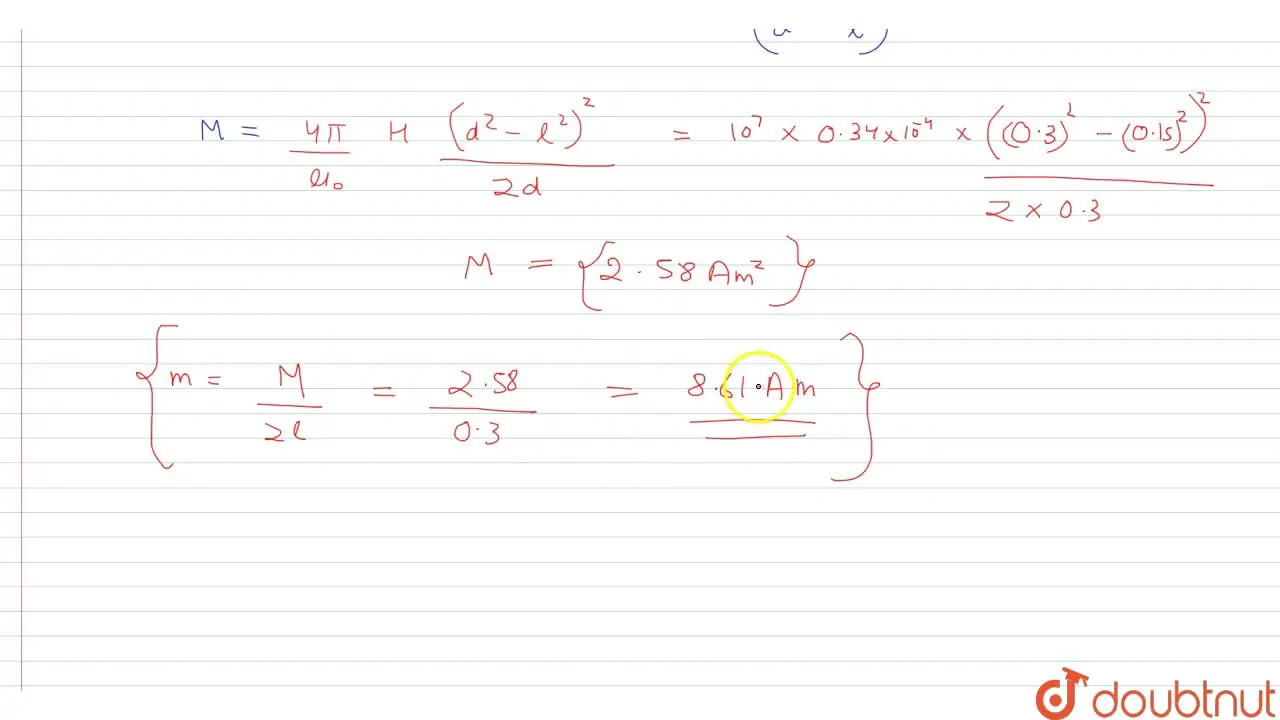 M = 4π/μ₀ H (d² - l²)²/2d = 10⁷ × 0.34×10⁻⁴ × ((0.3)² - (0.15)²)²/2 × 0.3
M = {2.58 Am²}
{m = M/2l = 2.58/0.3 = 8.61·Am}
doubtnut